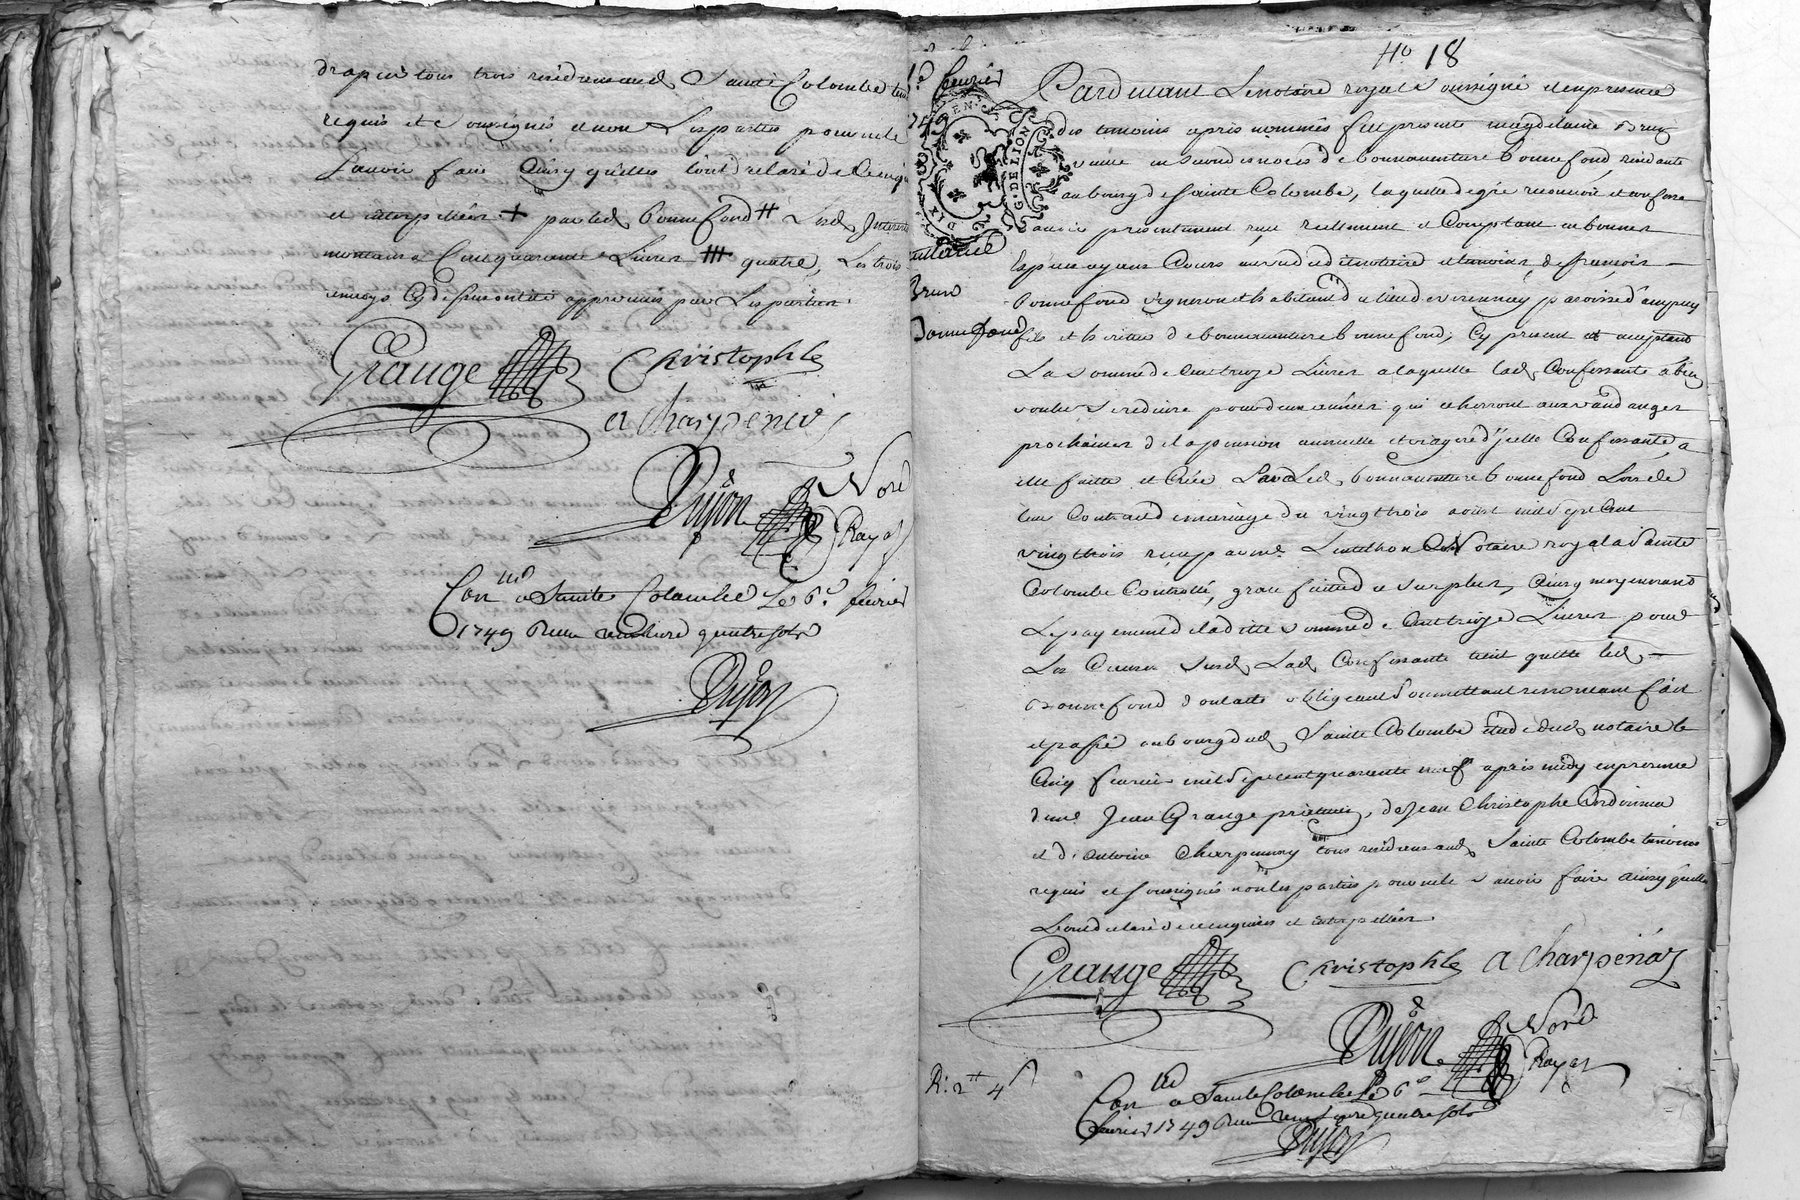 drapier tous trois residens aud Sainte Colombe tem
requis et Soussignés et non Les parties pour ne le
Sçavoir faire Ainsy qu'elles L'ont declaré de Ce enqui
et interpellées + par led Bonnefond # 
montant a Cent quarante Livres quatre, Les trois
renvoys Cy dessus ont été approuvés par Les parties.
Grange Christophle
A Charpenay
Dujon Nore
Royal
Con.lle a Sainte Colombe Le 6.e fevrier
1749 Reçu vingt quatre sols
Dujon
No 18
fevrier
1749
Pardevant Le notaire royal Soussigné et en presence
des temoins apres nommés fut presente magdelaine Brun
veuve en secondes noces de bonnaventure bonnefond, residante
au bourg de Sainte Colombe, laquelle de gré reconnoit et confesse
avoir presentement reçu reellement et Comptant en bonnes
Especes ayans Cours au vu dud notaire et temoins, de françois
bonnefond vigneron et habitant du lieu de paroisse d'ampuy
fils et heritier de bonnaventure bonnefond, Cy present et acceptant
Quittance
Brun
Bonnefond
La somme de Cent treize Livres a laquelle lad Confessante a bien
voulu Se reduire pour deux années qui echerront aux vandanges
prochaines de la pension annuelle et viagere d'jcelle Confessante, a
elle faitte et Créée Par Led bonnaventure bonnefond Lors de
leur Contract de mariage du vingt trois aoust mil Sept Cent
vingt trois reçu par me Notaire royal a Sainte
Colombe Controllé, grace faitte du Surplus, Ainsy moyennant
Le payement de la ditte somme de Cent treize Livres pour
Les Causes Susd Lad Confessante tient quitte led
Bonnefond dont acte obligeant Soumettant renonceant fait
et passé au bourg dud Sainte Colombe étude dud notaire le
Cinq fevrier mil Sept cent quarante neuf apres midy en presence
de me Jean Grange praticien, de Jean Christophle Cordonnier
et d'antoine Charpenay tous residens aud Sainte Colombe temoins
requis et Soussignés non les parties pour ne le Sçavoir faire ainsy qu'elles
L'ont declaré de ce enquises et interpellées.
Grange Christophle A Charpenay
Dujon Nore
Royal
R: 2 # 4 s
Con.lle a Sainte Colombe Le 6e
fevrier 1749 Reçu quatre sols
Dujon
G. DE LION